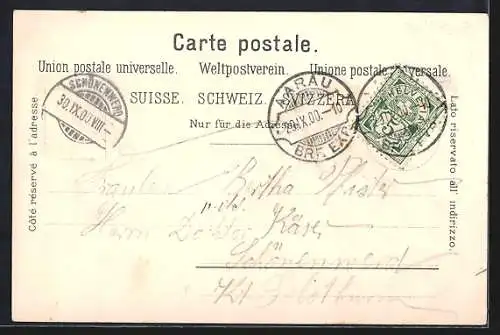 Carte postale.
Union postale universelle. Weltpostverein. Unione postale universale.
SUISSE. SCHWEIZ. SVIZZERA
Nur für die Adresse.
Côté réservé à l'adresse
Lato riservato all' indirizzo.
SCHÖNENWERD
30.IX.00.VIII-
AARAU
29.IX.00.-10
BRF. EXP.
HELVETIA
Fräulein Bertha Pfister
Herrn Doktor Käser
Schönenwerd
Kt. Solothurn